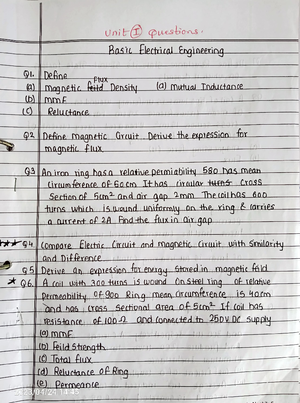 Unit I questions.
Basic Electrical Engineering
Q1. Define
Flux
(a) magnetic feild Density (a) mutual Inductance
(b) mmF
(c) Reluctance
Q2 Define magnetic Circuit Derive the expression for
magnetic flux
Q3 An iron ring has a relative permiability 580 has mean
circumference of 60cm It has circular turns cross
section of 5cm² and air gap 2mm The coil has 600
turns which is wound uniformly on the ring & carries
a current of 2A Find the flux in air gap
Q4 Compare Electric Circuit and magnetic circuit with Similarity
and Difference
Q5 Derive an expression for energy stored in magnetic feild
Q6. A coil with 300 turns is wound on steel ring of relative
Permeability of 900 Ring mean circumference is 40cm
and has cross sectional area of 5cm² If coil has
resistance of 100Ω and connected to 250V DC supply
(a) mmF
(b) Feild strength
(c) Total flux
(d) Reluctance of Ring
(e) Permeance